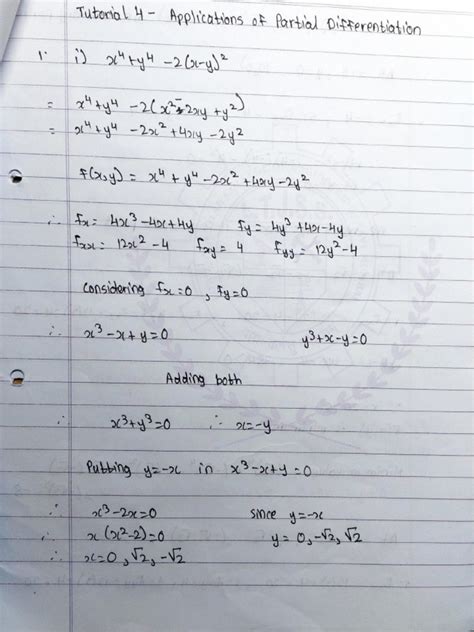 Tutorial 4 - Applications of Partial Differentiation
1. i) x⁴+y⁴ -2(x-y)²
= x⁴+y⁴ -2(x²-2xy+y²)
= x⁴+y⁴ -2x²+4xy-2y²
f(x,y) = x⁴+y⁴-2x²+4xy-2y²
∴ fx= 4x³-4x+4y fy= 4y³+4x-4y
fxx= 12x²-4 fxy= 4 fyy= 12y²-4
considering fx=0, fy=0
∴ x³-x+y=0 y³+x-y=0
Adding both
∴ x³+y³=0 ∴ x=-y
Putting y=-x in x³-x+y=0
∴ x³-2x=0 since y=-x
∴ x(x²-2)=0 y= 0,-√2,√2
∴ x=0,√2,-√2